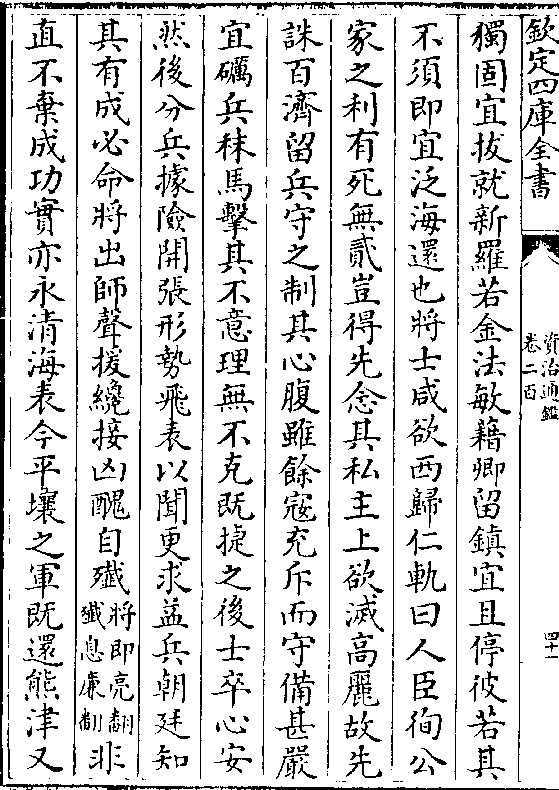 欽定四庫全書
資治通鑑
卷二百
四十
獨固宜拔就新羅若金法敏藉卿留鎮宜且停彼若其
不須即宜泛海還也將士咸欲西歸仁軌曰人臣徇公
家之利有死無貳豈得先念其私主上欲滅高麗故先
誅百濟留兵守之制其心腹雖餘寇充斥而守備甚嚴
宜礪兵秣馬擊其不意理無不克既捷之後士卒心安
然後分兵據險開張形勢飛表以聞更求益兵朝廷知
其有成必命將出師聲援纔接凶醜自殲將即亮翻殲息廉翻非
直不棄成功實亦永清海表今平壤之軍既還熊津又